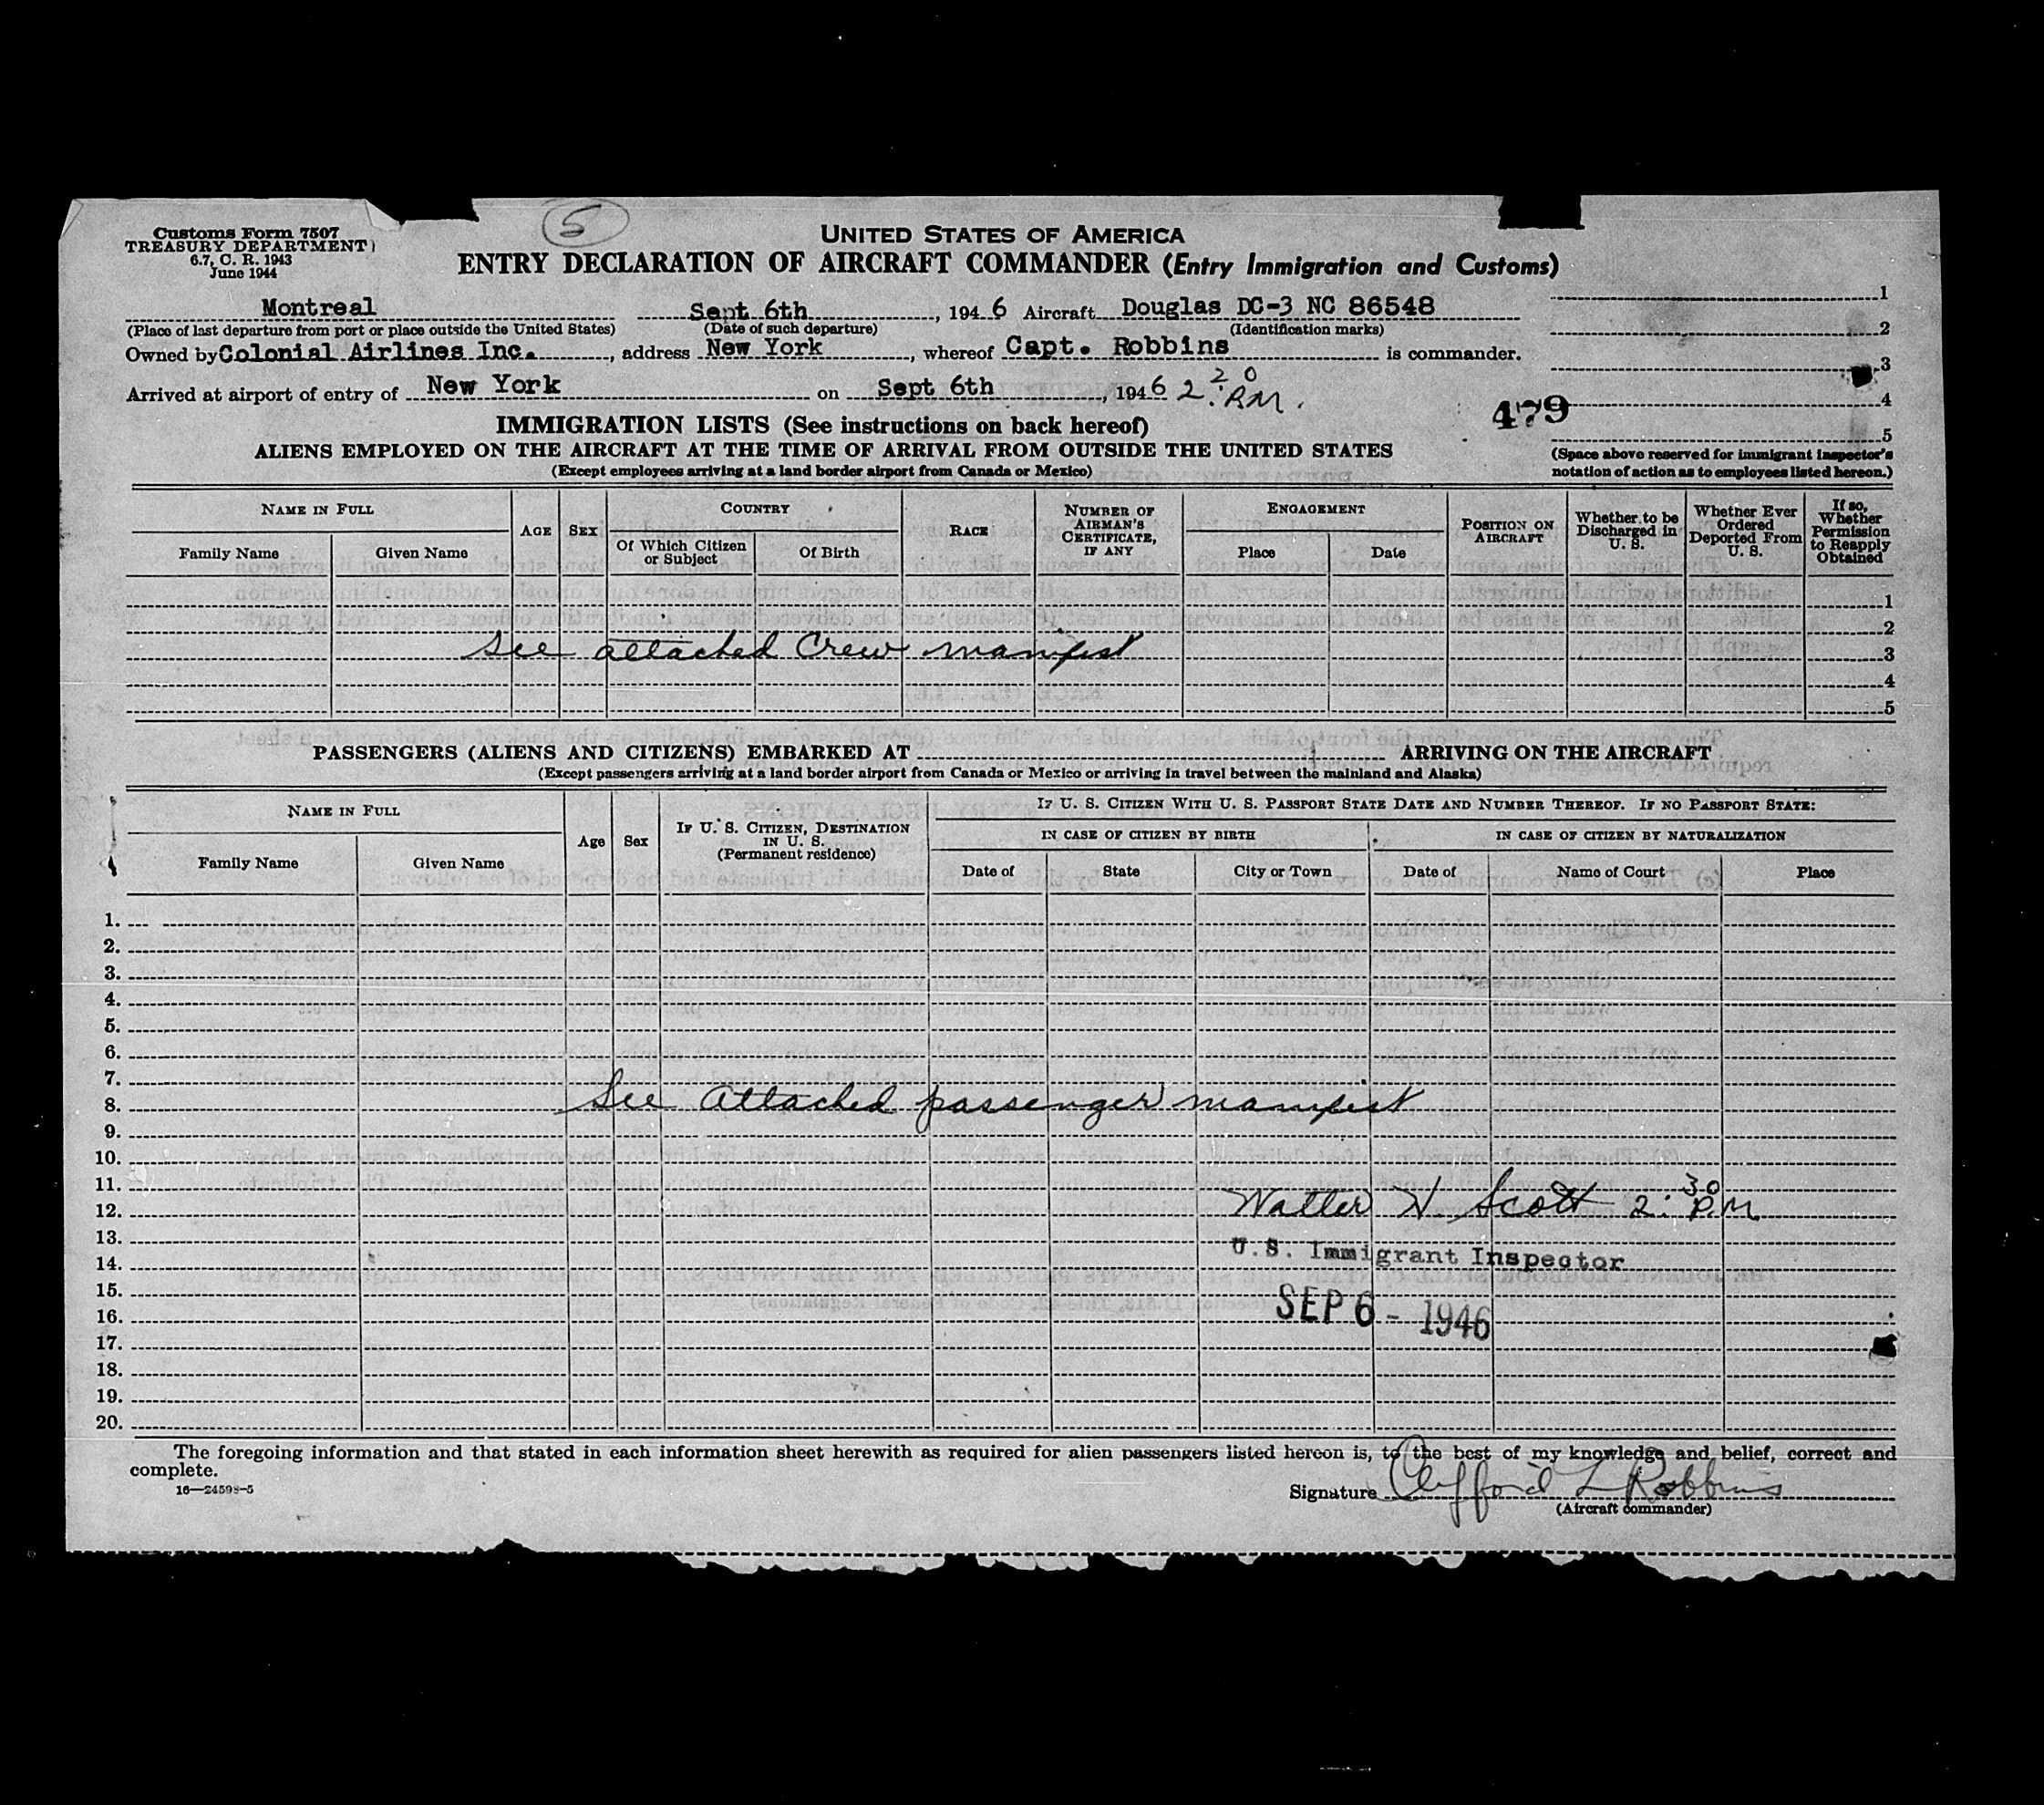 Customs Form 7507
TREASURY DEPARTMENT
6.7, C. R. 1943
June 1944
5
UNITED STATES OF AMERICA
ENTRY DECLARATION OF AIRCRAFT COMMANDER (Entry Immigration and Customs)
Montreal Sept 6th, 1946 Aircraft Douglas DC-3 NC 86548
(Place of last departure from port or place outside the United States) (Date of such departure) (Identification marks)
Owned by Colonial Airlines Inc., address New York, whereof Capt. Robbins is commander.
Arrived at airport of entry of New York on Sept 6th, 1946 2:20 P.M.
1
2
3
4
5
479
(Space above reserved for immigrant inspector's
notation of action as to employees listed hereon.)
IMMIGRATION LISTS (See instructions on back hereof)
ALIENS EMPLOYED ON THE AIRCRAFT AT THE TIME OF ARRIVAL FROM OUTSIDE THE UNITED STATES
(Except employees arriving at a land border airport from Canada or Mexico)
NAME IN FULL
Family Name Given Name
AGE
SEX
COUNTRY
Of Which Citizen or Subject
Of Birth
RACE
NUMBER OF AIRMAN'S CERTIFICATE, IF ANY
ENGAGEMENT
Place Date
POSITION ON AIRCRAFT
Whether to be Discharged in U. S.
Whether Ever Ordered Deported From U. S.
If so, Whether Permission to Reapply Obtained
1
2
See attached Crew manifest 3
4
5
PASSENGERS (ALIENS AND CITIZENS) EMBARKED AT ARRIVING ON THE AIRCRAFT
(Except passengers arriving at a land border airport from Canada or Mexico or arriving in travel between the mainland and Alaska)
NAME IN FULL
Family Name Given Name
Age
Sex
IF U. S. CITIZEN, DESTINATION IN U. S.
(Permanent residence)
IF U. S. CITIZEN WITH U. S. PASSPORT STATE DATE AND NUMBER THEREOF. IF NO PASSPORT STATE:
IN CASE OF CITIZEN BY BIRTH IN CASE OF CITIZEN BY NATURALIZATION
Date of State City or Town Date of Name of Court Place
1.
2.
3.
4.
5.
6.
7.
8. See attached passenger manifest
9.
10.
11.
12. Walter H. Scott 2:30 P.M
13.
14. U.S. Immigrant Inspector
15.
16. SEP 6 - 1946
17.
18.
19.
20.
The foregoing information and that stated in each information sheet herewith as required for alien passengers listed hereon is, to the best of my knowledge and belief, correct and
complete.
16—24598-5
Signature Clifford L Robbins
(Aircraft commander)